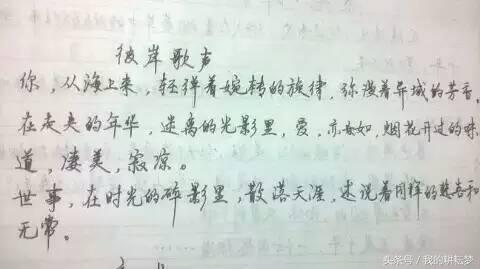 彼岸歌声
你，从海上来，轻弹着婉转的旋律，弥漫着异域的芳香，
在走失的年华，迷离的光影里，爱，亦如，烟花开过的味
道，凄美，寂凉。
世事，在时光的碎影里，散落天涯，述说着同样的悲喜和
无常。
头条号/我的耕耘梦